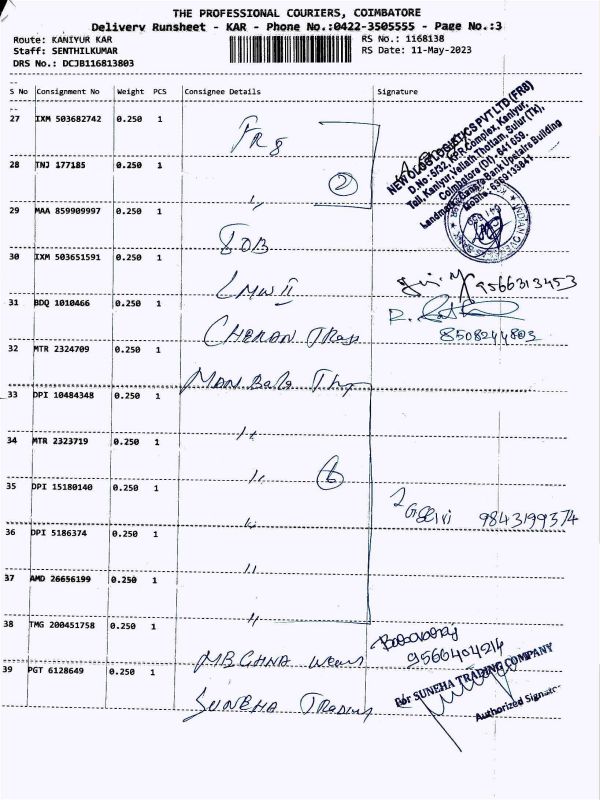 THE PROFESSIONAL COURIERS, COIMBATORE
Delivery Runsheet - KAR - Phone No.:0422-3505555 - Page No.:3
Route: KANIYUR KAR
RS No.: 1168138
Staff: SENTHILKUMAR
RS Date: 11-May-2023
DRS No.: DCJB116813803
S No Consignment No Weight PCS Consignee Details Signature
27 IXM 503682742 0.250 1
FR8
28 TNJ 177185 0.250 1
2
"
29 MAA 859909997 0.250 1
IOB
30 IXM 503651591 0.250 1
LMW II
9566313453
31 BDQ 1010466 0.250 1
CHERAN
8508244803
32 MTR 2324709 0.250 1
33 DPI 10484348 0.250 1
"
34 MTR 2323719 0.250 1
" 6
35 DPI 15180140 0.250 1
" 9843199374
36 DPI 5186374 0.250 1
"
37 AMD 26656199 0.250 1
"
38 TMG 200451758 0.250 1
39 PGT 6128649 0.250 1
SUNEHA Trading
NEW OLOG LOGISTICS PVT LTD (FR8)
D.No: 5/32, KPR Complex, Kaniyur,
Toll, Kaniyur, Vellath Thottam, Sulur (Tk),
Coimbatore (Dt) - 641 659.
Landmark: Canara Bank Upstairs Building
For SUNEHA TRADING COMPANY
Authorized Signator